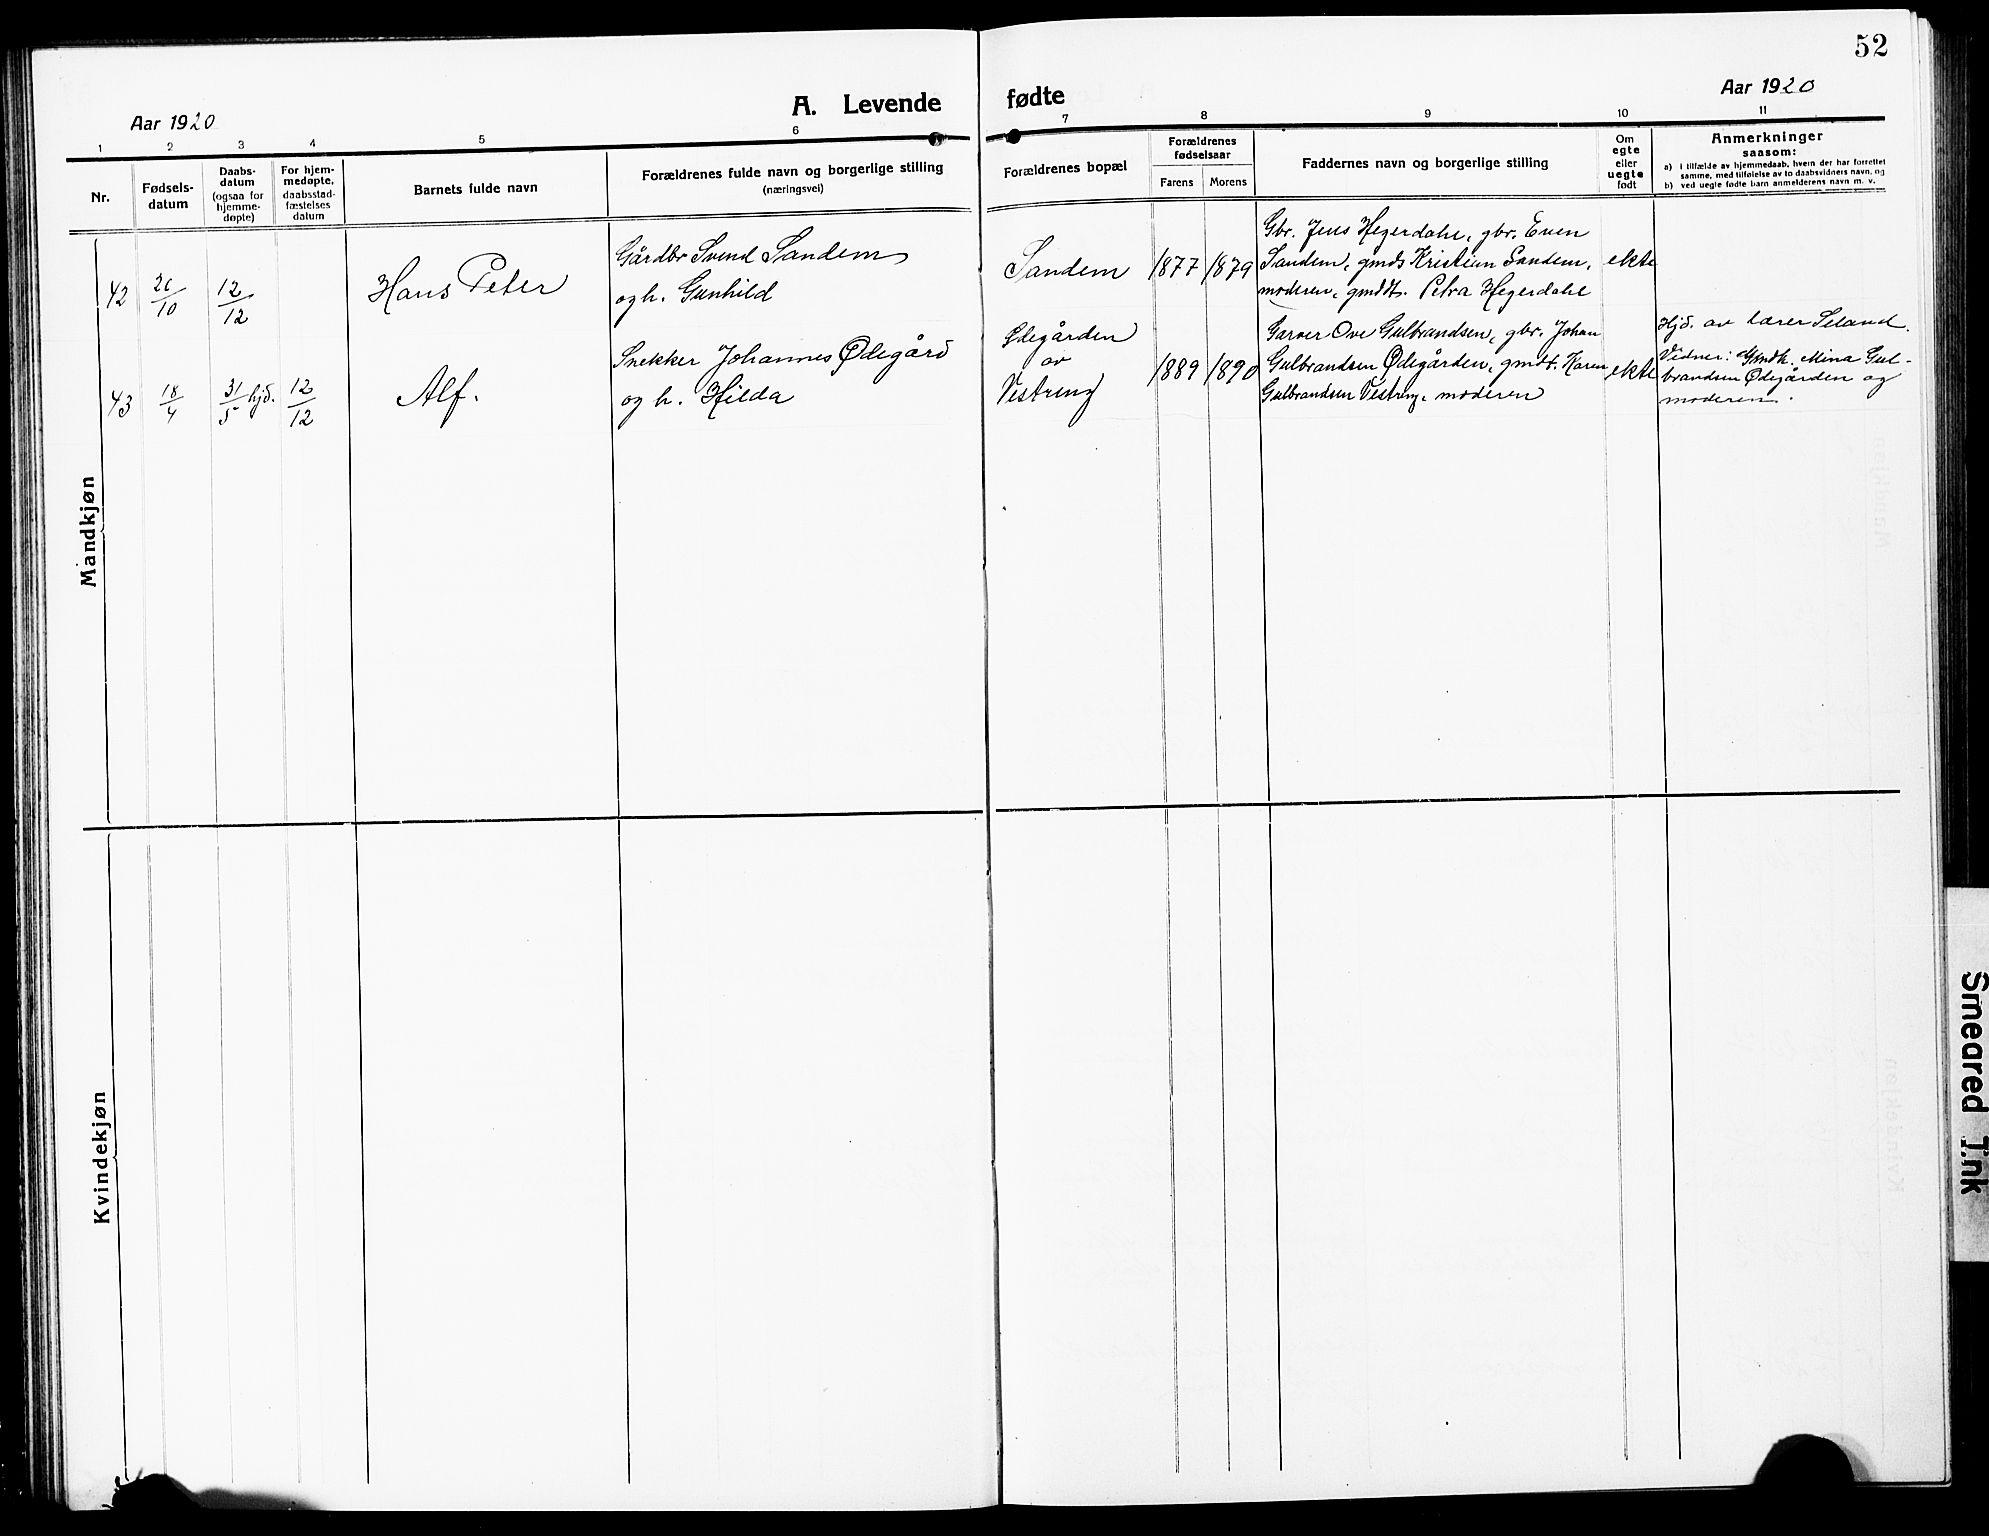 52
Aar 1920
A. Levende fødte
Aar 1920
1 2 3 4 5 6 7 8 9 10 11
Nr.
Fødsels-
datum
Daabs-
datum
(ogsaa for
hjemme-
døpte)
For hjem-
medøpte,
daabsstad-
fæstelses
datum
Barnets fulde navn
Forældrenes fulde navn og borgerlige stilling
(næringsvei)
Forældrenes bopæl
Forældrenes
fødselsaar
Farens
Morens
Faddernes navn og borgerlige stilling
Om
egte
eller
uegte
født
Anmerkninger
saasom:
a) i tilfælde av hjemmedaab, hvem der har forrettet
samme, med tilføielse av to daabsvidners navn, og
b) ved uegte fødte barn anmelderens navn m. v.
Mandkjøn
42
20/10
12/12
Hans Peter
Gårdbr Svend Sandem
og h. Gunhild
Sandem
1877
1879
Gbr. Jens Hegerdahl, gbr. Even
Sandem, gmds Kristian Sandem,
moderen, gmddt. Petra Hegerdahl
ekte
43
18/4
31/5 hjd.
12/12
Alf.
Snekker Johannes Ødegård
og h. Hilda
Ødegården
av
Vestreng
1889
1890
Garver Ove Gulbrandsen, gbr. Johan
Gulbrandsen Ødegården, gmdt. Karen
Gulbrandsen Vestreng, moderen
ekte
Hjd. av lærer Seland.
Vidner: Gmdk. Mina Gul-
brandsen Ødegården og
moderen.
Kvindekjøn
Smeared Ink